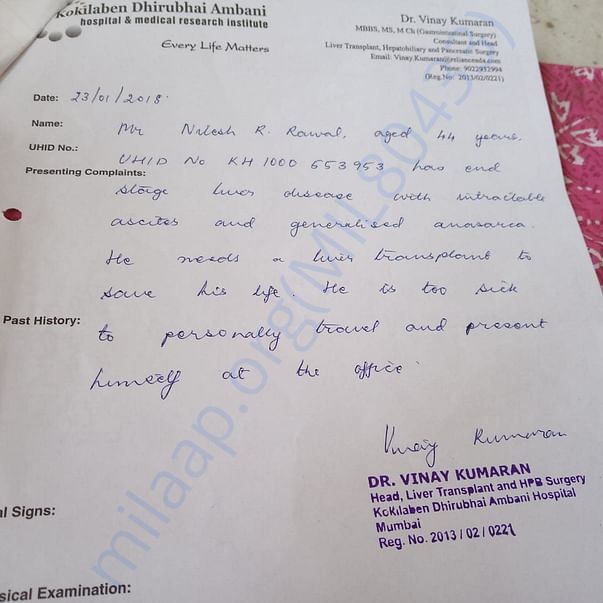 Kokilaben Dhirubhai Ambani
hospital & medical research institute
Every Life Matters
Dr. Vinay Kumaran
MBBS, MS, M Ch (Gastrointestinal Surgery)
Consultant and Head
Liver Transplant, Hepatobiliary and Pancreatic Surgery
Email: Vinay.Kumaran@relianceada.com
Phone: 9022932994
(Reg.No: 2013/02/0221)
Date: 23/01/2018
Name: Mr Nilesh R. Rawal, aged 44 years,
UHID No.: UHID No KH 1000 553953 has end
Presenting Complaints: stage liver disease with intractable
ascites and generalised anasarca.
He needs a liver transplant to
save his life. He is too sick
Past History: to personally travel and present
himself at the office.
Vinay Kumaran
DR. VINAY KUMARAN
Head, Liver Transplant and HPB Surgery
Kokilaben Dhirubhai Ambani Hospital
Mumbai
Reg. No. 2013 / 02 / 0221
al Signs:
sical Examination:
milaap.org(MIL8043